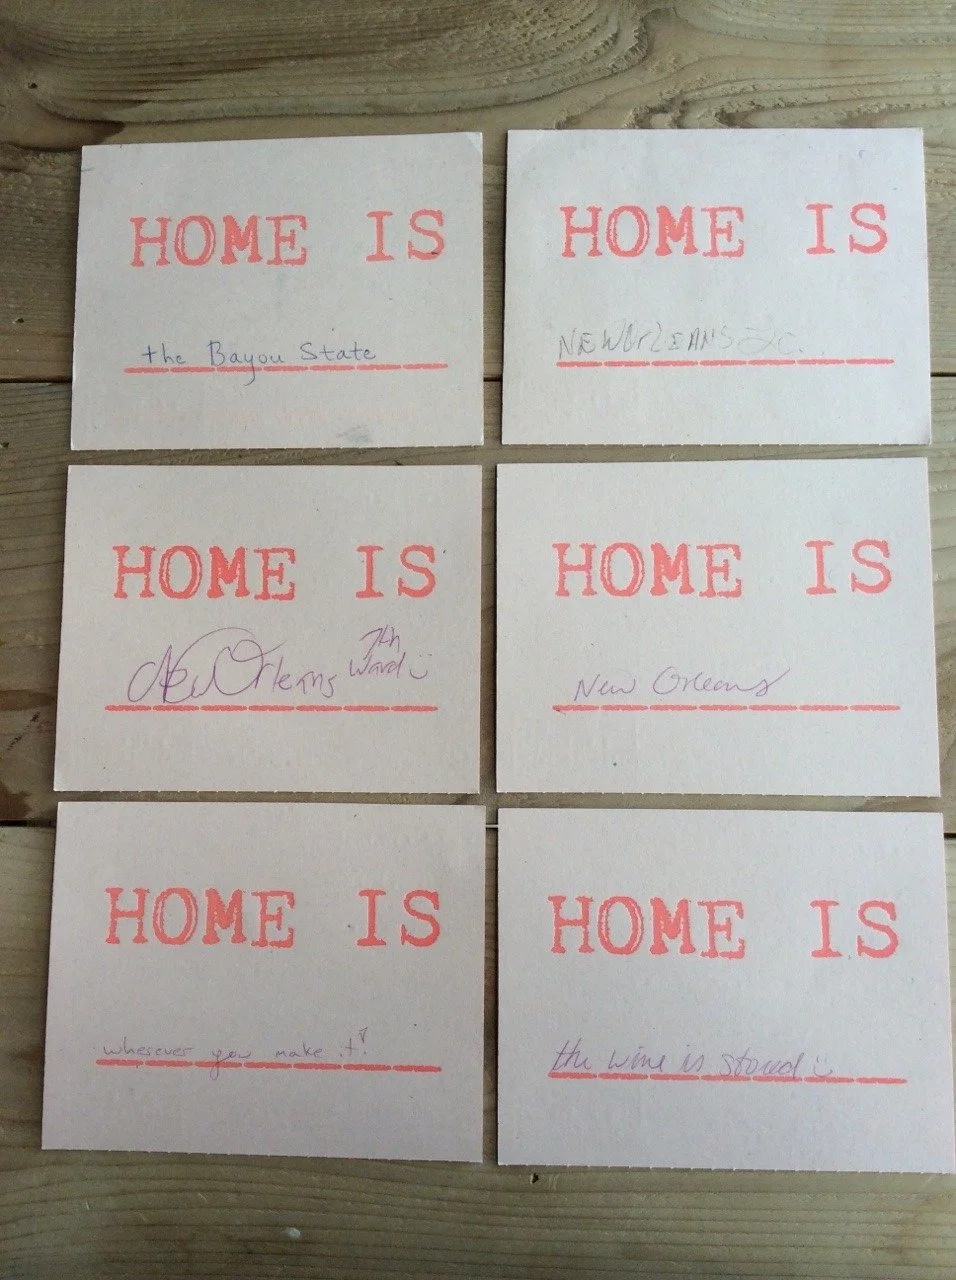 HOME IS
the Bayou State
HOME IS
NEWORLEANS
HOME IS
New Orleans 7th Ward
HOME IS
New Orleans
HOME IS
wherever you make it!
HOME IS
the wine is stored